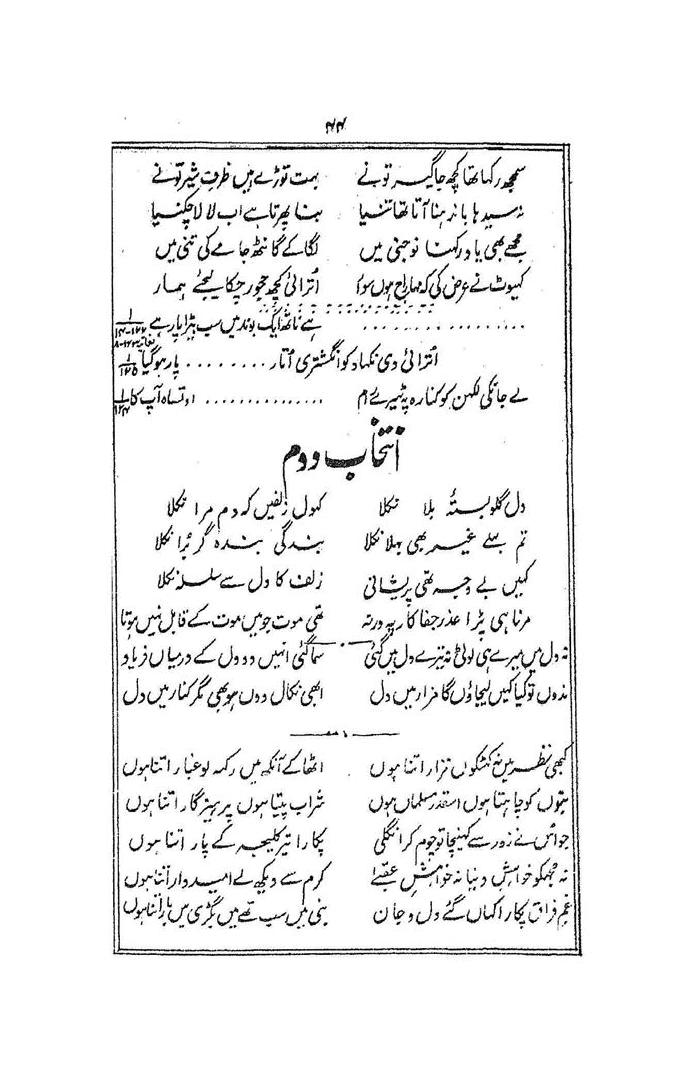 ۴۴
سمجھ رکہا تھا کچھ جاگیر تونے بہت توڑے ہیں ظرفِ شیر تونے
نہ سیدہا باندہنا آتا تھا تنیا بنا پھرتا ہے اب لالا چکنیا
مجھے بھی یاد رکہنا نوجنی میں لگا کے گانٹھ جامے کی تنی میں
کہیوٹ نے عرض کی کہ مہاراج ہوں سوا اُترائی کچھ حجور چکا لیجئے ہمار
................ ہے ناتھ ایک بوند میں سب بیڑا پار ہے
اُترائی دی نکہاد کو انگشتری اُتار ........ پار ہوگیا ۱/۱۲۵
لے جانکی لکہن کو کنارہ پہ ............... اوتساہ آپ کا
انتخاب دوم
دل گلوبستۂ بلا نکلا کہول زلفیں کہ دم مرا نکلا
تم بھلے غیر بھی بہلا نکلا بندگی بندہ گر بُرا نکلا
کہیں بے وجہ تھی پریشانی زلف کا دل سے سلسلہ نکلا
مرنا ہی پڑا عذر جفا کار پہ ورنہ تھی موت جو میں موت کے قابل نہیں ہوتا
نہ دل میں میرے ہی لوٹی نہ تیرے دل میں گئی سماگئی انہیں دو دل کے درمیاں فریاد
نہ دوں تو کیا کہیں لیجاؤں گا مزار میں دل ابھی نکال دوں ہو بھی مگر کنار میں دل
کبھی نظر میں نہ کہٹکوں نزار اتنا ہوں اٹھا کے آنکھ میں رکہہ لو غبار اتنا ہوں
بتوں کو چاہتا ہوں اسقدر مسلماں ہوں شراب پیتا ہوں پرہیزگار اتنا ہوں
جو اس نے زور سے کہینچا تو چوم کر نکلی پکارا تیر کلیجہ کے پار اتنا ہوں
نہ مجہکو خواہشِ دنیا نہ خواہشِ عقبےٰ کرم سے دیکھ لے امیدوار اتنا ہوں
غمِ فراق پکارا کہاں گئے دل و جان بنی میں سب تھے میں بگڑی میں یار اتنا ہوں